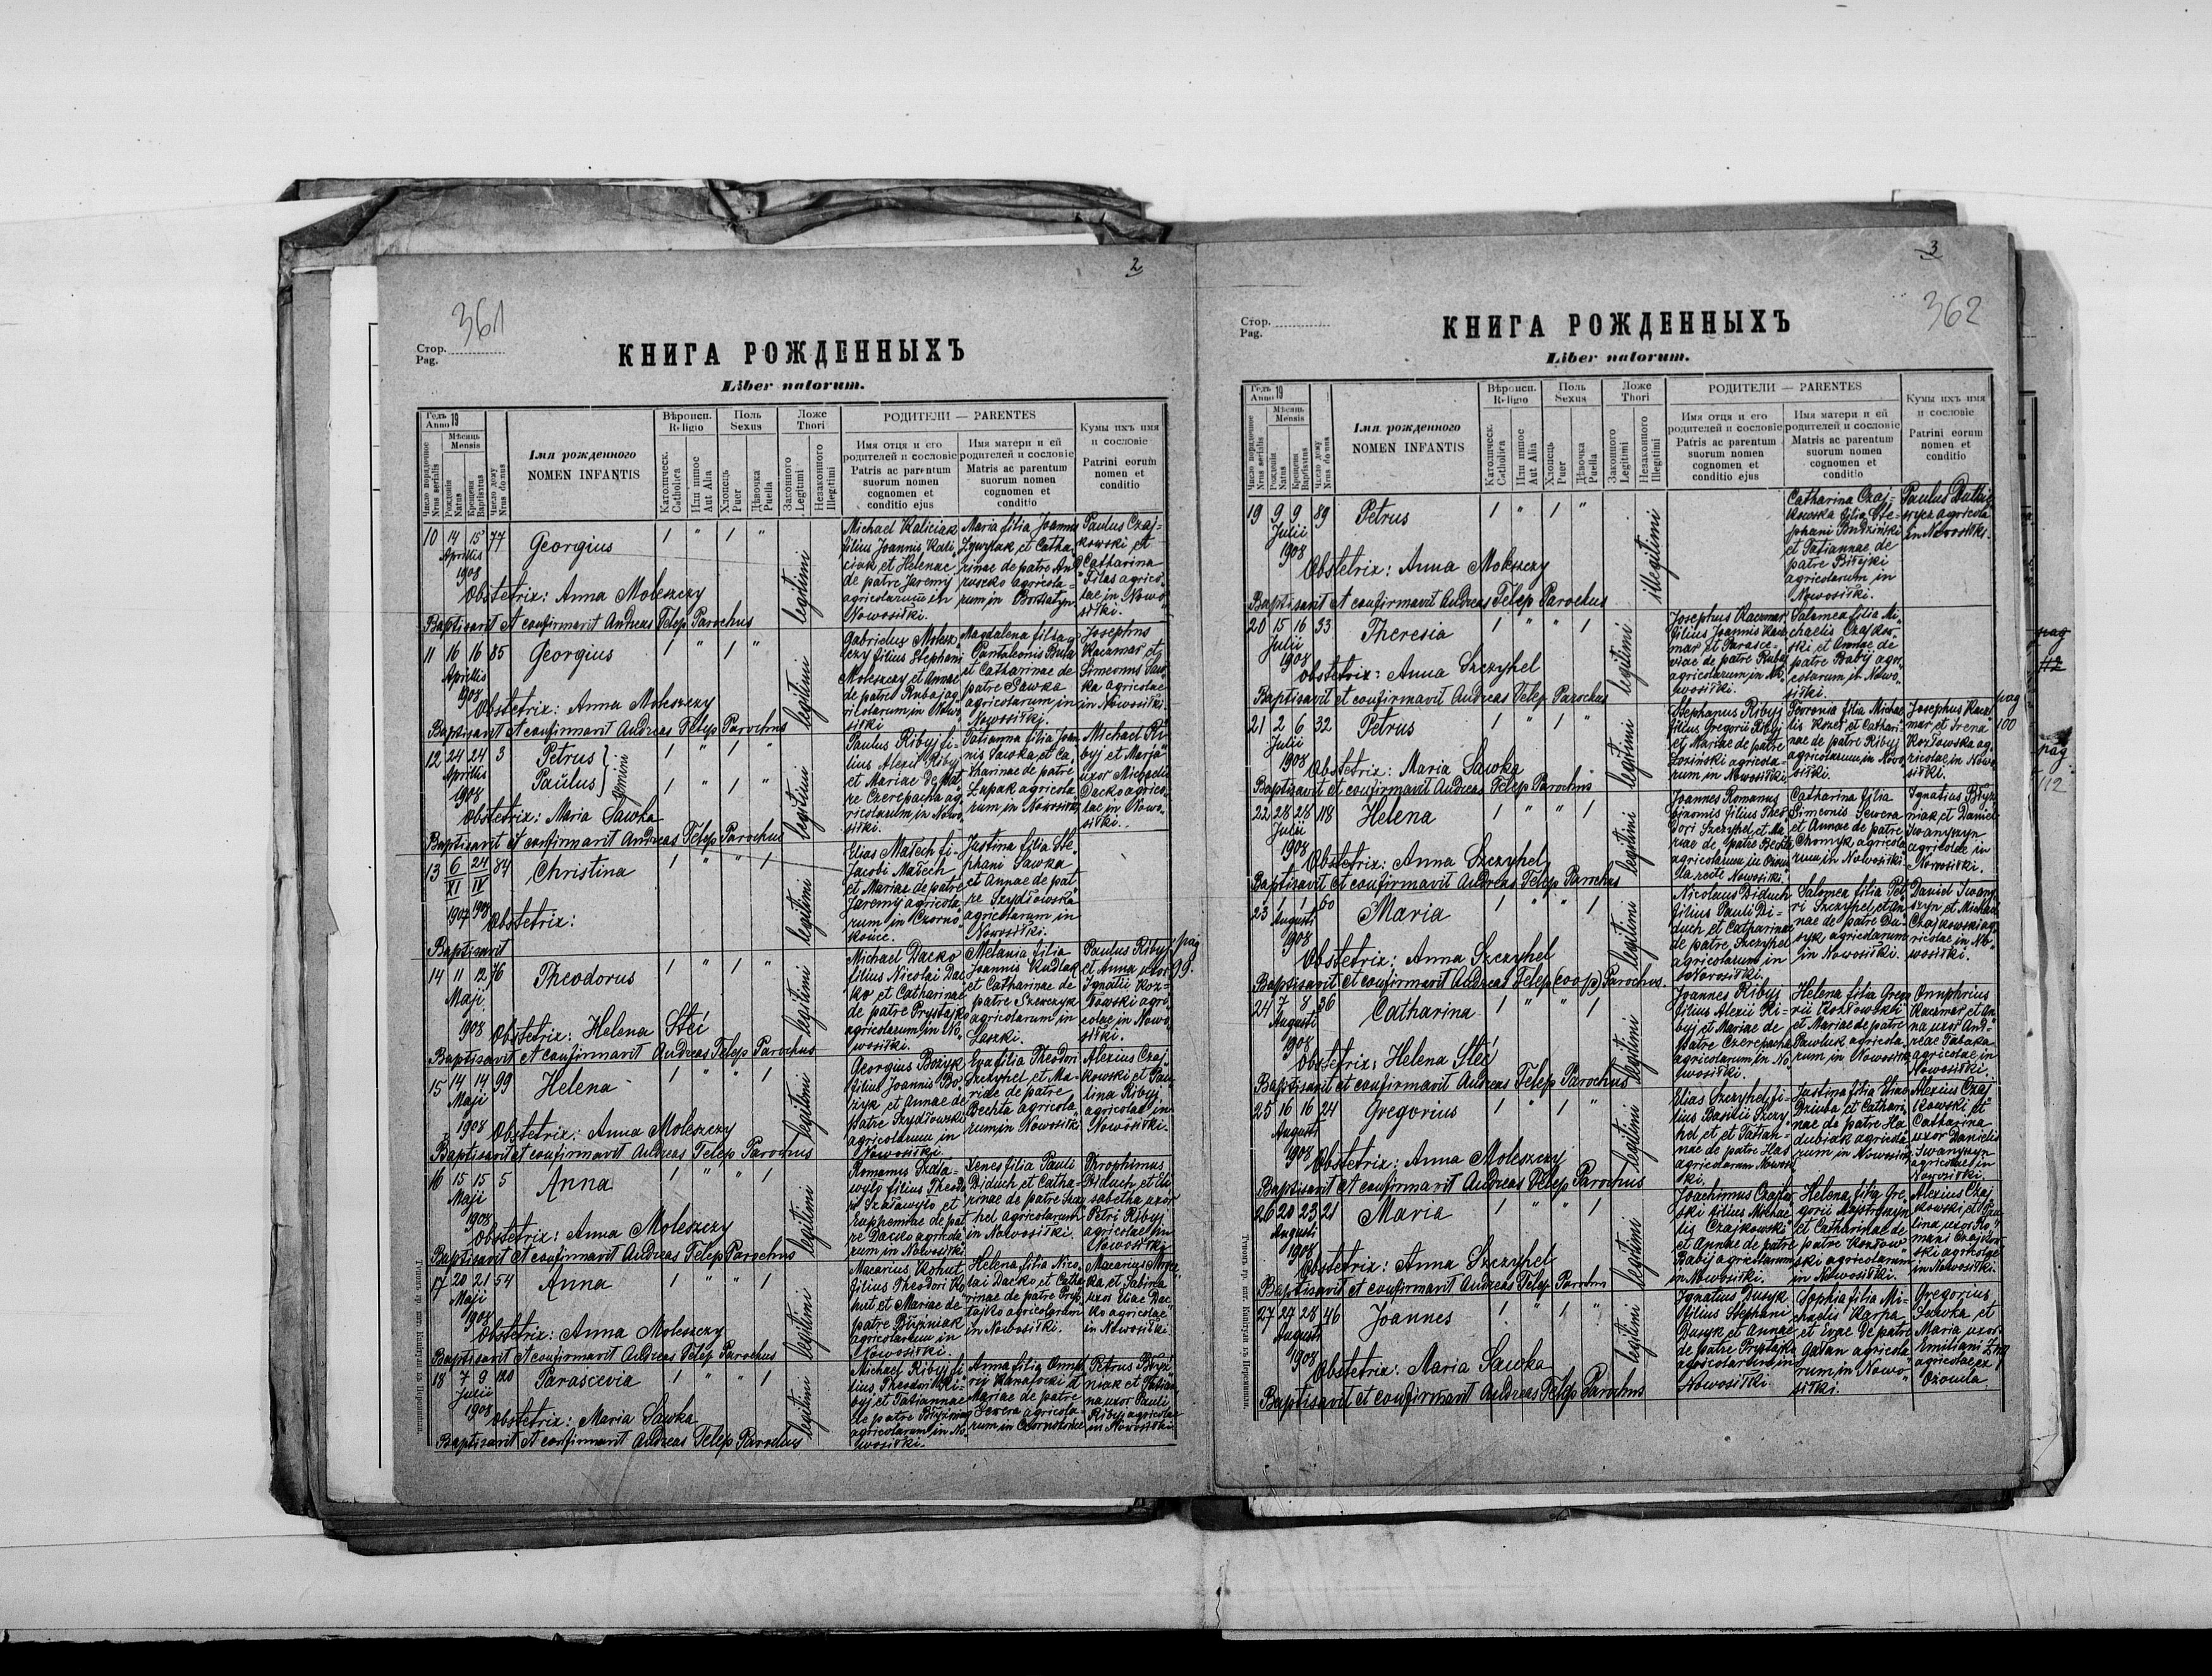 2
361
Стор.
Pag.
КНИГА РОЖДЕННЫХЪ
Liber natorum.
Годъ 19
Anno
Мѣсяць
Mensis
Число порядочное
Nrus serialis
Рожденія
Natus
Крещенія
Baptisatus
Число дому
Nrus domus
Імя рожденного
NOMEN INFANTIS
Вѣроисп.
Religio
Католическ.
Catholica
Или инное
Aut Alia
Поль
Sexus
Хлопець
Puer
Дѣвочка
Puella
Ложе
Thori
Законного
Legitimi
Незаконного
Illegitimi
РОДИТЕЛИ — PARENTES
Имя отця и его
родителей и сословіе
Patris ac parentum
suorum nomen
cognomen et
conditio ejus
Имя матери и ей
родителей и сословіе
Matris ac parentum
suorum nomen
cognomen et
conditio
Кумы ихъ имя
и сословіе
Patrini eorum
nomen et
conditio
10 14 15 77 Georgius 1 " 1 " legitimi
Aprilis
1908
Obstetrix: Anna Moleszczy
Baptisavit et confirmavit Andreas Telep Parochus
Michael Kaliciak
filius Joannis Kali
ciak et Helenae
de patre Jaremy
agricolarum in
Nowosiłki.
Maria filia Joannis
et Catha
rinae de patre An
druszko agricola
rum in Bortiatyn
Paulus Czaj-
kowski et
Catharina
Filas agrico
lae in Nowo
siłki.
11 16 16 85 Georgius 1 " 1 " legitimi
Aprilis
1908
Obstetrix: Anna Moleszczy
Baptisavit et confirmavit Andreas Telep Parochus
Gabrielus Molesz
czy filius Stephani
Moleszczy et Annae
de patre Rubaj ag
ricolarum in Nowo
siłki
Magdalena filia
Pantaleonis Buła
et Catharinae de
patre Sawka
agricolarum in
Nowosiłki.
Josephus
Kaczmar et
Simeonus Saw
ka agricolae
in Nowosiłki.
12 24 24 3 Petrus } gemini 1 " 1 " legitimi
Aprilis Paulus 1 " 1 "
1908
Obstetrix: Maria Sawka
Baptisavit et confirmavit Andreas Telep Parochus
Paulus Ribyj fi-
lius Alexii Ribyj
et Mariae de pat
re Czerepacha ag
ricolarum in Nowo
siłki.
Tatianna filia Joan
nis Sawka et Ca
tharinae de patre
Łupak agricola
rum in Nowosiłki
Michael Ri
byj et Maria
uxor Michaelis
Dacko agrico
lae in Nowo
siłki.
13 6 24 84 Christina 1 " " 1 legitimi
XI IV
1907 1908 Obstetrix:
Baptisavit
Elias Małech fi-
Jacobi Małech
et Mariae de patre
Jaremy agricola
rum in Czorno
końce.
Justina filia Ste
phani Sawka
et Annae de pat
re Szydłowska
agricolarum in
Nowosiłki.
14 11 12 76 Theodorus 1 " 1 " legitimi
Maji
1908 Obstetrix: Helena Steć
Baptisavit et confirmavit Andreas Telep Parochus
Michael Dacko
filius Nicolai Dac
ko et Catharinae
de patre Prystajko
agricolarum in No
wosiłki.
Melania filia
Joannis Kudlak
et Catharinae de
patre Szewczyk
agricolarum in
Laszki.
Paulus Ribyj
et Anna uxor
Ignatii Koz-
łowski agri
colae in Nowo
siłki.
pag
99.
15 14 14 99 Helena 1 " " 1 legitimi
Maji
1908 Obstetrix: Anna Moleszczy
Baptisavit et confirmavit Andreas Telep Parochus
Georgius Bożyk
filius Joannis Bo
żyk et Annae de
patre Szydłowski
agricolarum in
Nowosiłki.
Eva filia Theodori
Szczyhel et Ma
riae de patre
Bechta agricola
rum in Nowosiłki
Alexius Czaj
kowski et Pau
lina Ribyj
agricolae in
Nowosiłki.
16 15 15 5 Anna 1 " " 1 legitimi
Maji
1908
Obstetrix: Anna Moleszczy
Baptisavit et confirmavit Andreas Telep Parochus
Romanus Szała-
wyło filius Theodo
ri Szaławyło et
Euphemiae de pat
re Dacko agricola
rum in Nowosiłki.
Xenes filia Pauli
Diduch et Catha-
rinae de patre Szczy
hel agricolarum
in Nowosiłki.
Throphimus
Diduch et Eli
sabetha uxor
Petri Ribyj
agricolae in
Nowosiłki
17 20 21 54 Anna 1 " " 1 legitimi
Maji
1908
Obstetrix: Anna Moleszczy
Baptisavit et confirmavit Andreas Telep Parochus
Macarius Kohut
filius Theodori Ko
hut et Mariae de
patre Błyzniak
agricolarum in
Nowosiłki.
Helena filia Nico
lai Dacko et Catha
rinae de patre Prys
tajko agricolarum
in Nowosiłki.
Macarius
ka et Sabina
uxor Eliae Dac
ko agricolae
in Nowosiłki.
18 7 9 120 Parascevia 1 " " 1 legitimi
Julii
1908
Obstetrix: Maria Sawka
Baptisavit et confirmavit Andreas Telep Parochus
Michael Ribyj fi
lius Theodori Ri-
byj et Tatiannae
de patre Błyzniak
agricolarum in No
wosiłki.
Anna filia Onuf
rii Kanafocki et
Mariae de patre
Sewera agricola
rum in Czornokońce
Petrus Błyz
niak et Tatian
na uxor Pauli
Ribyj agricolae
in Nowosiłki
3
362
Стор.
Pag.
КНИГА РОЖДЕННЫХЪ
Liber natorum.
Годъ 19
Anno
Мѣсяць
Mensis
Число порядочное
Nrus serialis
Рожденія
Natus
Крещенія
Baptisatus
Число дому
Nrus domus
Імя рожденного
NOMEN INFANTIS
Вѣроисп.
Religio
Католическ.
Catholica
Или инное
Aut Alia
Поль
Sexus
Хлопець
Puer
Дѣвочка
Puella
Ложе
Thori
Законного
Legitimi
Незаконного
Illegitimi
РОДИТЕЛИ — PARENTES
Имя отця и его
родителей и сословіе
Patris ac parentum
suorum nomen
cognomen et
conditio ejus
Имя матери и ей
родителей и сословіе
Matris ac parentum
suorum nomen
cognomen et
conditio
Кумы ихъ имя
и сословіе
Patrini eorum
nomen et
conditio
19 9 9 89 Petrus 1 " 1 " illegitimi
Julii
1908
Obstetrix: Anna Moleszczy
Baptisavit et confirmavit Andreas Telep Parochus
Catharina Czaj-
kowska filia Ste-
phani Budziński
et Tatiannae de
patre Bilejki
agricolarum in
Nowosiłki.
Paulus
agricola
in Nowosiłki.
20 15 16 33 Theresia 1 " " 1 legitimi
Julii
1908
Obstetrix: Anna Szczyhel
Baptisavit et confirmavit Andreas Telep Parochus
Josephus Kaczmar
filius Joannis Kacz
mar et Parasce-
viae de patre Rubaj
agricolarum in No
wosiłki.
Salomea filia Mi-
chaelis Czajkow
ski et Annae de
patre Babij agri
colarum in Nowo
siłki.
21 2 6 32 Petrus 1 " 1 " legitimi
Julii
1908
Obstetrix: Maria Sawka
Baptisavit et confirmavit Andreas Telep Parochus
Stephanus Ribyj
filius Gregorii Ribyj
et Mariae de patre
Łoziński agricola
rum in Nowosiłki.
Peronia filia Michae
lis Kozet et Cathari
nae de patre Ribyj
agricolarum in Nowo
siłki.
Josephus Kacz
mar et Irena
Kozłowska ag
ricolae in Nowo
siłki.
pag
100
22 28 28 118 Helena 1 " " 1 legitimi
Julii
1908
Obstetrix: Anna Szczyhel
Baptisavit et confirmavit Andreas Telep Parochus
Joannes Romanus
binomis filius Theo
dori Szczyhel et Ma
riae de patre Bechta
agricolarum in
recte Nowosiłki.
Catharina filia
Simeonis Sewera
et Annae de patre
Chomyk agricola
rum in Nowosiłki
Ignatius Błyz
niak et Daniel
Iwanyszyn
agricolae in
Nowosiłki.
23 1 1 60 Maria 1 " " 1 legitimi
Augusti
1908
Obstetrix: Anna Szczyhel
Baptisavit et confirmavit Andreas Telep Parochus
Nicolaus Diduch
filius Pauli Di-
duch et Catharinae
de patre Szczyhel
agricolarum in
Nowosiłki.
Salomea filia Pet
ri Szczyhel et An
nae de patre Du
syk agricolarum
in Nowosiłki.
Daniel Iwany
szyn et Michael
Czajkowski ag
ricolae in No
wosiłki.
24 7 8 36 Catharina 1 " " 1 legitimi
Augusti
1908
Obstetrix: Helena Steć
Baptisavit et confirmavit Andreas Telep Parochus
Joannes Ribyj
filius Alexii Ri-
byj et Mariae de
patre Czerepacha
agricolarum in No
wosiłki.
Helena filia Grego
rii Kozłowski
et Mariae de patre
Pawluk agricola
rum in Nowosiłki
Onuphrius
Kaczmar et An
na uxor And-
reae Tabaka
agricolae in
Nowosiłki.
25 16 16 24 Gregorius 1 " 1 " legitimi
Augusti
1908
Obstetrix: Anna Moleszczy
Baptisavit et confirmavit Andreas Telep Parochus
Elias Szczyhel fi-
lius Basilii Szczy
hel et et Tatian-
nae de patre Has
agricolarum Nowosi
łki.
Justina filia Eliae
Dziuba et Cathari
nae de patre Ha
dubiak agricola
rum in Nowosiłki
Alexius Czaj
kowski et
Catharina
uxor Danielis
Iwanyszyn
agricolae in
Nowosiłki.
26 20 23 21 Maria 1 " " 1 legitimi
Augusti
1908
Obstetrix: Anna Szczyhel
Baptisavit et confirmavit Andreas Telep Parochus
Joachimus Czajkow
ski filius Michae
lis Czajkowski
et Annae de patre
Babij agricolarum
in Nowosiłki.
Helena filia Gre
gorii Majstryszyn
et Catharinae de
patre Kozłow
ski agricolarum
in Nowosiłki.
Alexius Czaj
kowski et Pau
lina uxor Ro
mani Czajkow
ski agricolae
in Nowosiłki.
27 27 28 46 Joannes 1 " 1 " legitimi
Augusti
1908
Obstetrix: Maria Sawka
Baptisavit et confirmavit Andreas Telep Parochus
Ignatius Dusyk
filius Stephani
Dusyk et Annae
de patre Prystajko
agricolarum in
Nowosiłki
Sophia filia Mi-
chaelis Karpa
et Evae de patre
Gałan agricola
rum in Nowo
siłki.
Gregorius
Sawka et
Maria uxor
Emiliani
agricolae ex
Ożomla.
pag
112
pag
112